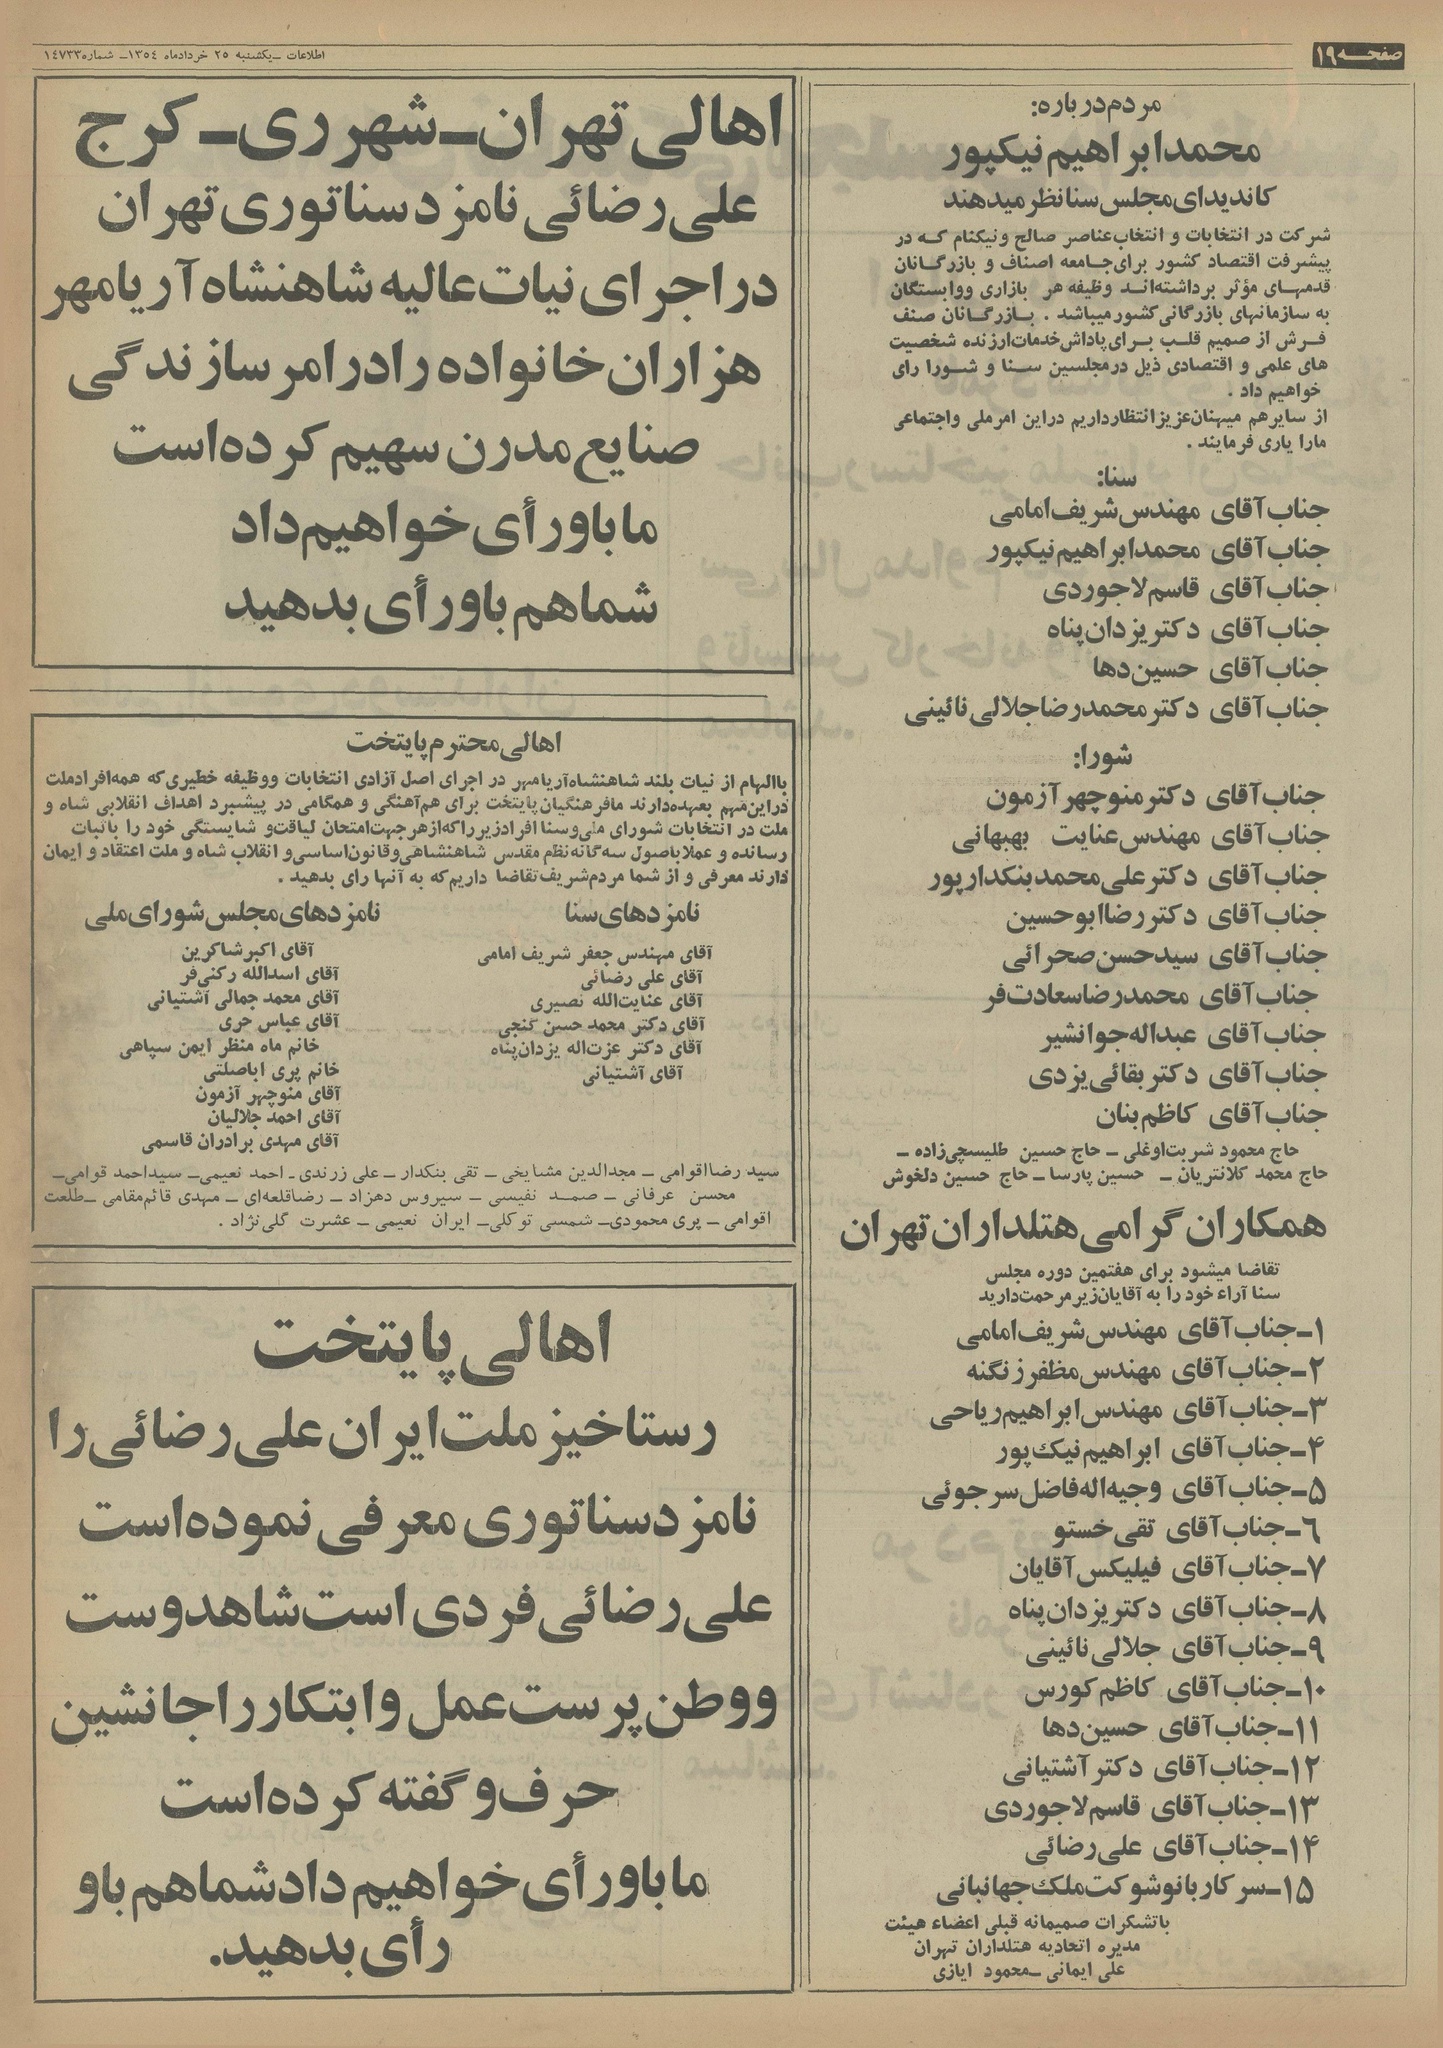 صفحه ۱۹
اطلاعات ـ یکشنبه ۲۵ خردادماه ۱۳۵۴ـ شماره ۱۴۷۳۳
مردم درباره:
محمدابراهیم نیکپور
کاندیدای مجلس سنا نظر میدهند
شرکت در انتخابات و انتخاب عناصر صالح ونیکنام کـه در
پیشرفت اقتصاد کشور برای جامعه اصناف و بازرگانان
قدمهای مؤثر برداشته‌اند وظیفه هر بازاری ووابستگان
به سازمانهای بازرگانی کشور میباشد . بـازرگانان صنف
فرش از صمیم قلب برای پاداش خدمات ارزنده شخصیت
های علمی و اقتصادی ذیل در مجلسین سنا و شورا رای
خواهیم داد .
از سایر هم میهنان عزیز انتظار داریم دراین امر ملی واجتماعی
مارا یاری فرمایند .
سنا:
جناب آقای مهندس شریف امامی
جناب آقای محمدابراهیم نیکپور
جناب آقای قاسم لاجوردی
جناب آقای دکتر یزدان پناه
جناب آقای حسین دها
جناب آقای دکتر محمدرضا جلالی نائینی
شورا:
جناب آقای دکتر منوچهر آزمون
جناب آقای مهندس عنایت بهبهانی
جناب آقای دکتر علی محمد بنکدارپور
جناب آقای دکتر رضا ابوحسین
جناب آقای سیدحسن صحرائی
جناب آقای محمدرضا سعادت فر
جناب آقای عبداله جوانشیر
جناب آقای دکتر بقائی یزدی
جناب آقای کاظم بنان
حاج محمود شربت اوغلی ـ حاج حسین طلیسچی زاده ـ
حاج محمد کلانتریان ـ حسین پارسا ـ حاج حسین دلخوش
همکاران گرامی هتلداران تهران
تقاضا میشود برای هفتمین دوره مجلس
سنا آراء خود را به آقایان زیر مرحمت دارید
۱ـ جناب آقای مهندس شریف امامی
۲ـ جناب آقای مهندس مظفر زنگنه
۳ـ جناب آقای مهندس ابراهیم ریاحی
۴ـ جناب آقای ابراهیم نیک پور
۵ـ جناب آقای وجیه اله فاضل سرجوئی
۶ـ جناب آقای تقی خستو
۷ـ جناب آقای فیلیکس آقایان
۸ـ جناب آقای دکتر یزدان پناه
۹ـ جناب آقای جلالی نائینی
۱۰ـ جناب آقای کاظم کورس
۱۱ـ جناب آقای حسین دها
۱۲ـ جناب آقای دکتر آشتیانی
۱۳ـ جناب آقای قاسم لاجوردی
۱۴ـ جناب آقای علی رضائی
۱۵ـ سرکار بانو شوکت ملک جهانبانی
باتشکرات صمیمانه قبلی اعضاء هیئت
مدیره اتحادیه هتلداران تهران
علی ایمانی ـ محمود ایازی
اهالی تهران ـ شهرری ـ کرج
علی رضائی نامزد سناتوری تهران
در اجرای نیات عالیه شاهنشاه آریامهر
هزاران خانواده را در امر سازندگی
صنایع مدرن سهیم کرده است
ما باو رأی خواهیم داد
شما هم باو رأی بدهید
اهالی محترم پایتخت
باالهام از نیات بلند شاهنشاه آریامهر در اجرای اصل آزادی انتخابات ووظیفه خطیری که همه افراد ملت
دراین مهم بعهده دارند مافرهنگیان پایتخت برای هم‌آهنگی و همگامی در پیشبرد اهداف انقلابی شاه و
ملت در انتخابات شورای ملی وسنا افراد زیر را که از هر جهت امتحان لیاقت و شایستگی خود را باثبات
رسانده و عملا باصول سه گانه نظم مقدس شاهنشاهی و قانون اساسی و انقلاب شاه و ملت اعتقاد و ایمان
دارند معرفی و از شما مردم شریف تقاضا داریم که به آنها رای بدهید .
نامزدهای سنا
آقای مهندس جعفر شریف امامی
آقای علی رضائی
آقای عنایت الله نصیری
آقای دکتر محمد حسن گنجی
آقای دکتر عزت اله یزدان پناه
آقای آشتیانی
نامزدهای مجلس شورای ملی
آقای اکبر شاکرین
آقای اسدالله رکنی فر
آقای محمد جمالی آشتیانی
آقای عباس حری
خانم ماه منظر ایمن سپاهی
خانم پری اباصلتی
آقای منوچهر آزمون
آقای احمد جلالیان
آقای مهدی برادران قاسمی
سید رضا اقوامی ـ مجدالدین مشایخی ـ تقی بنکدار ـ علی زرندی ـ احمد نعیمی ـ سیداحمد قوامی ـ
محسن عرفانی ـ صمد نفیسی ـ سیروس دهزاد ـ رضا قلعه‌ای ـ مهدی قائم مقامی ـ طلعت
اقوامی ـ پری محمودی ـ شمسی توکلی ـ ایران نعیمی ـ عشرت گلی نژاد .
اهالی پایتخت
رستاخیز ملت ایران علی رضائی را
نامزد سناتوری معرفی نموده است
علی رضائی فردی است شاهدوست
ووطن پرست عمل وابتکار را جانشین
حرف و گفته کرده است
ما باو رأی خواهیم داد شما هم باو
رأی بدهید.